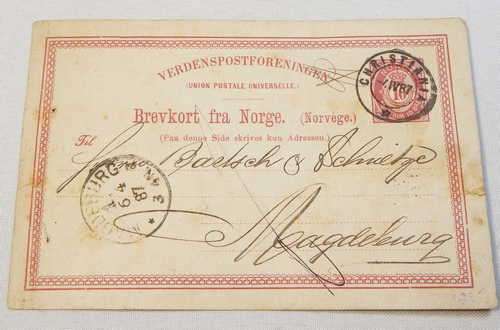 VERDENSPOSTFORENINGEN
(UNION POSTALE UNIVERSELLE.)
Brevkort fra Norge. (Norvege.)
(Paa denne Side skrives kun Adressen.)
Til
Bartsch & Schietze
Magdeburg
CHRISTIANIA
IV 87
10